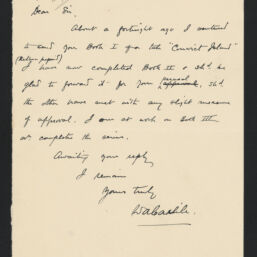 Dear Sir,
About a fortnight ago I ventured
to send you Book I of a tale "Convict Island"
I have now completed Book II & shd. be
glad to forward it for your perusal approval, shd.
the other have met with any slight measure
of approval. I am at work on Book III
to complete the series.
Awaiting your reply
I remain
Yours truly